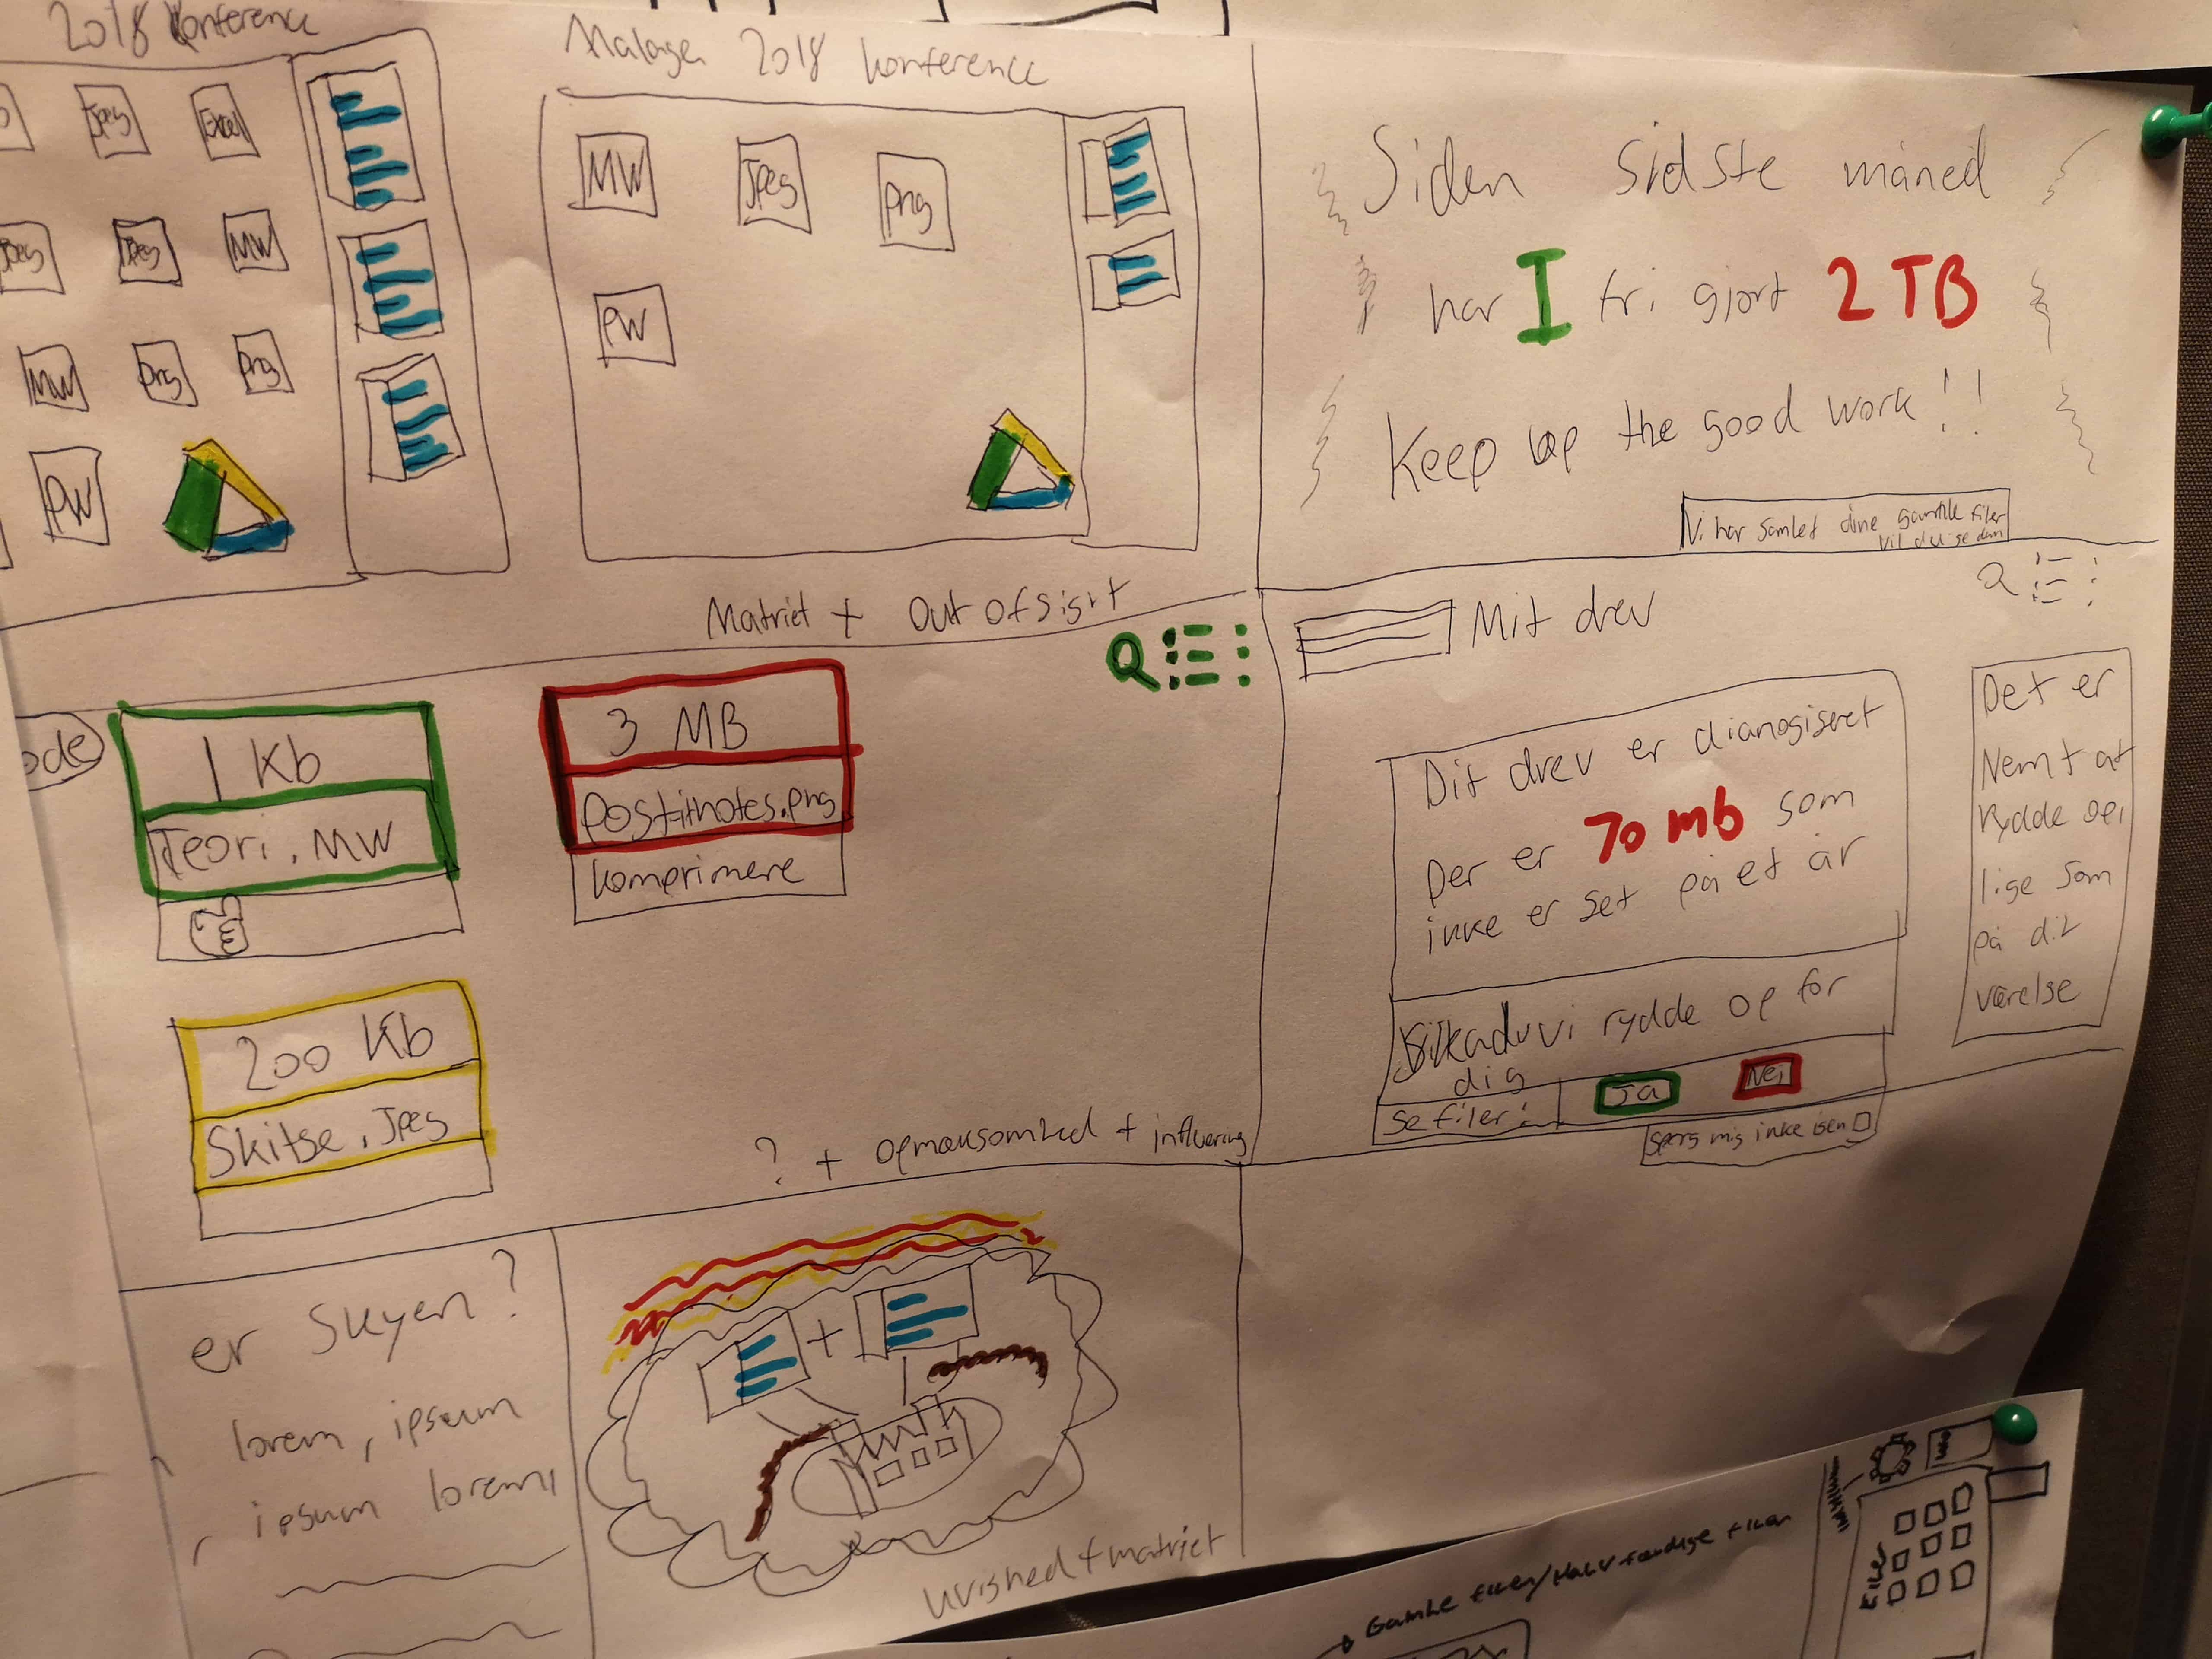 2018 konference
Jpeg
Excel
Jpeg
Jpeg
MW
MW
png
png
PW
Malaga 2018 konference
MW
Jpeg
png
PW
Siden sidste måned
har I fri gjort 2 TB
Keep up the good work!!
Vi har samlet dine gamle filer
vil du se dem
Matriet + Out of sight
1 Kb
Teori.MW
3 MB
Postitnotes.png
komprimere
200 Kb
Skitse.Jpeg
? + opmærksomhed + influering
Mit drev
Dit drev er dianogiseret
Der er 70 mb som
ikke er set på et år
vi rydde op for
dig
Se filer:
Ja
Nej
Spørg mig ikke igen
Det er
Nemt at
rydde op i
lige som
på dit
værelse
er skyen?
lorem, ipsum
ipsum lorem,
+
uvished + matriet
Gamle filer/Halvfærdige filer
Filer